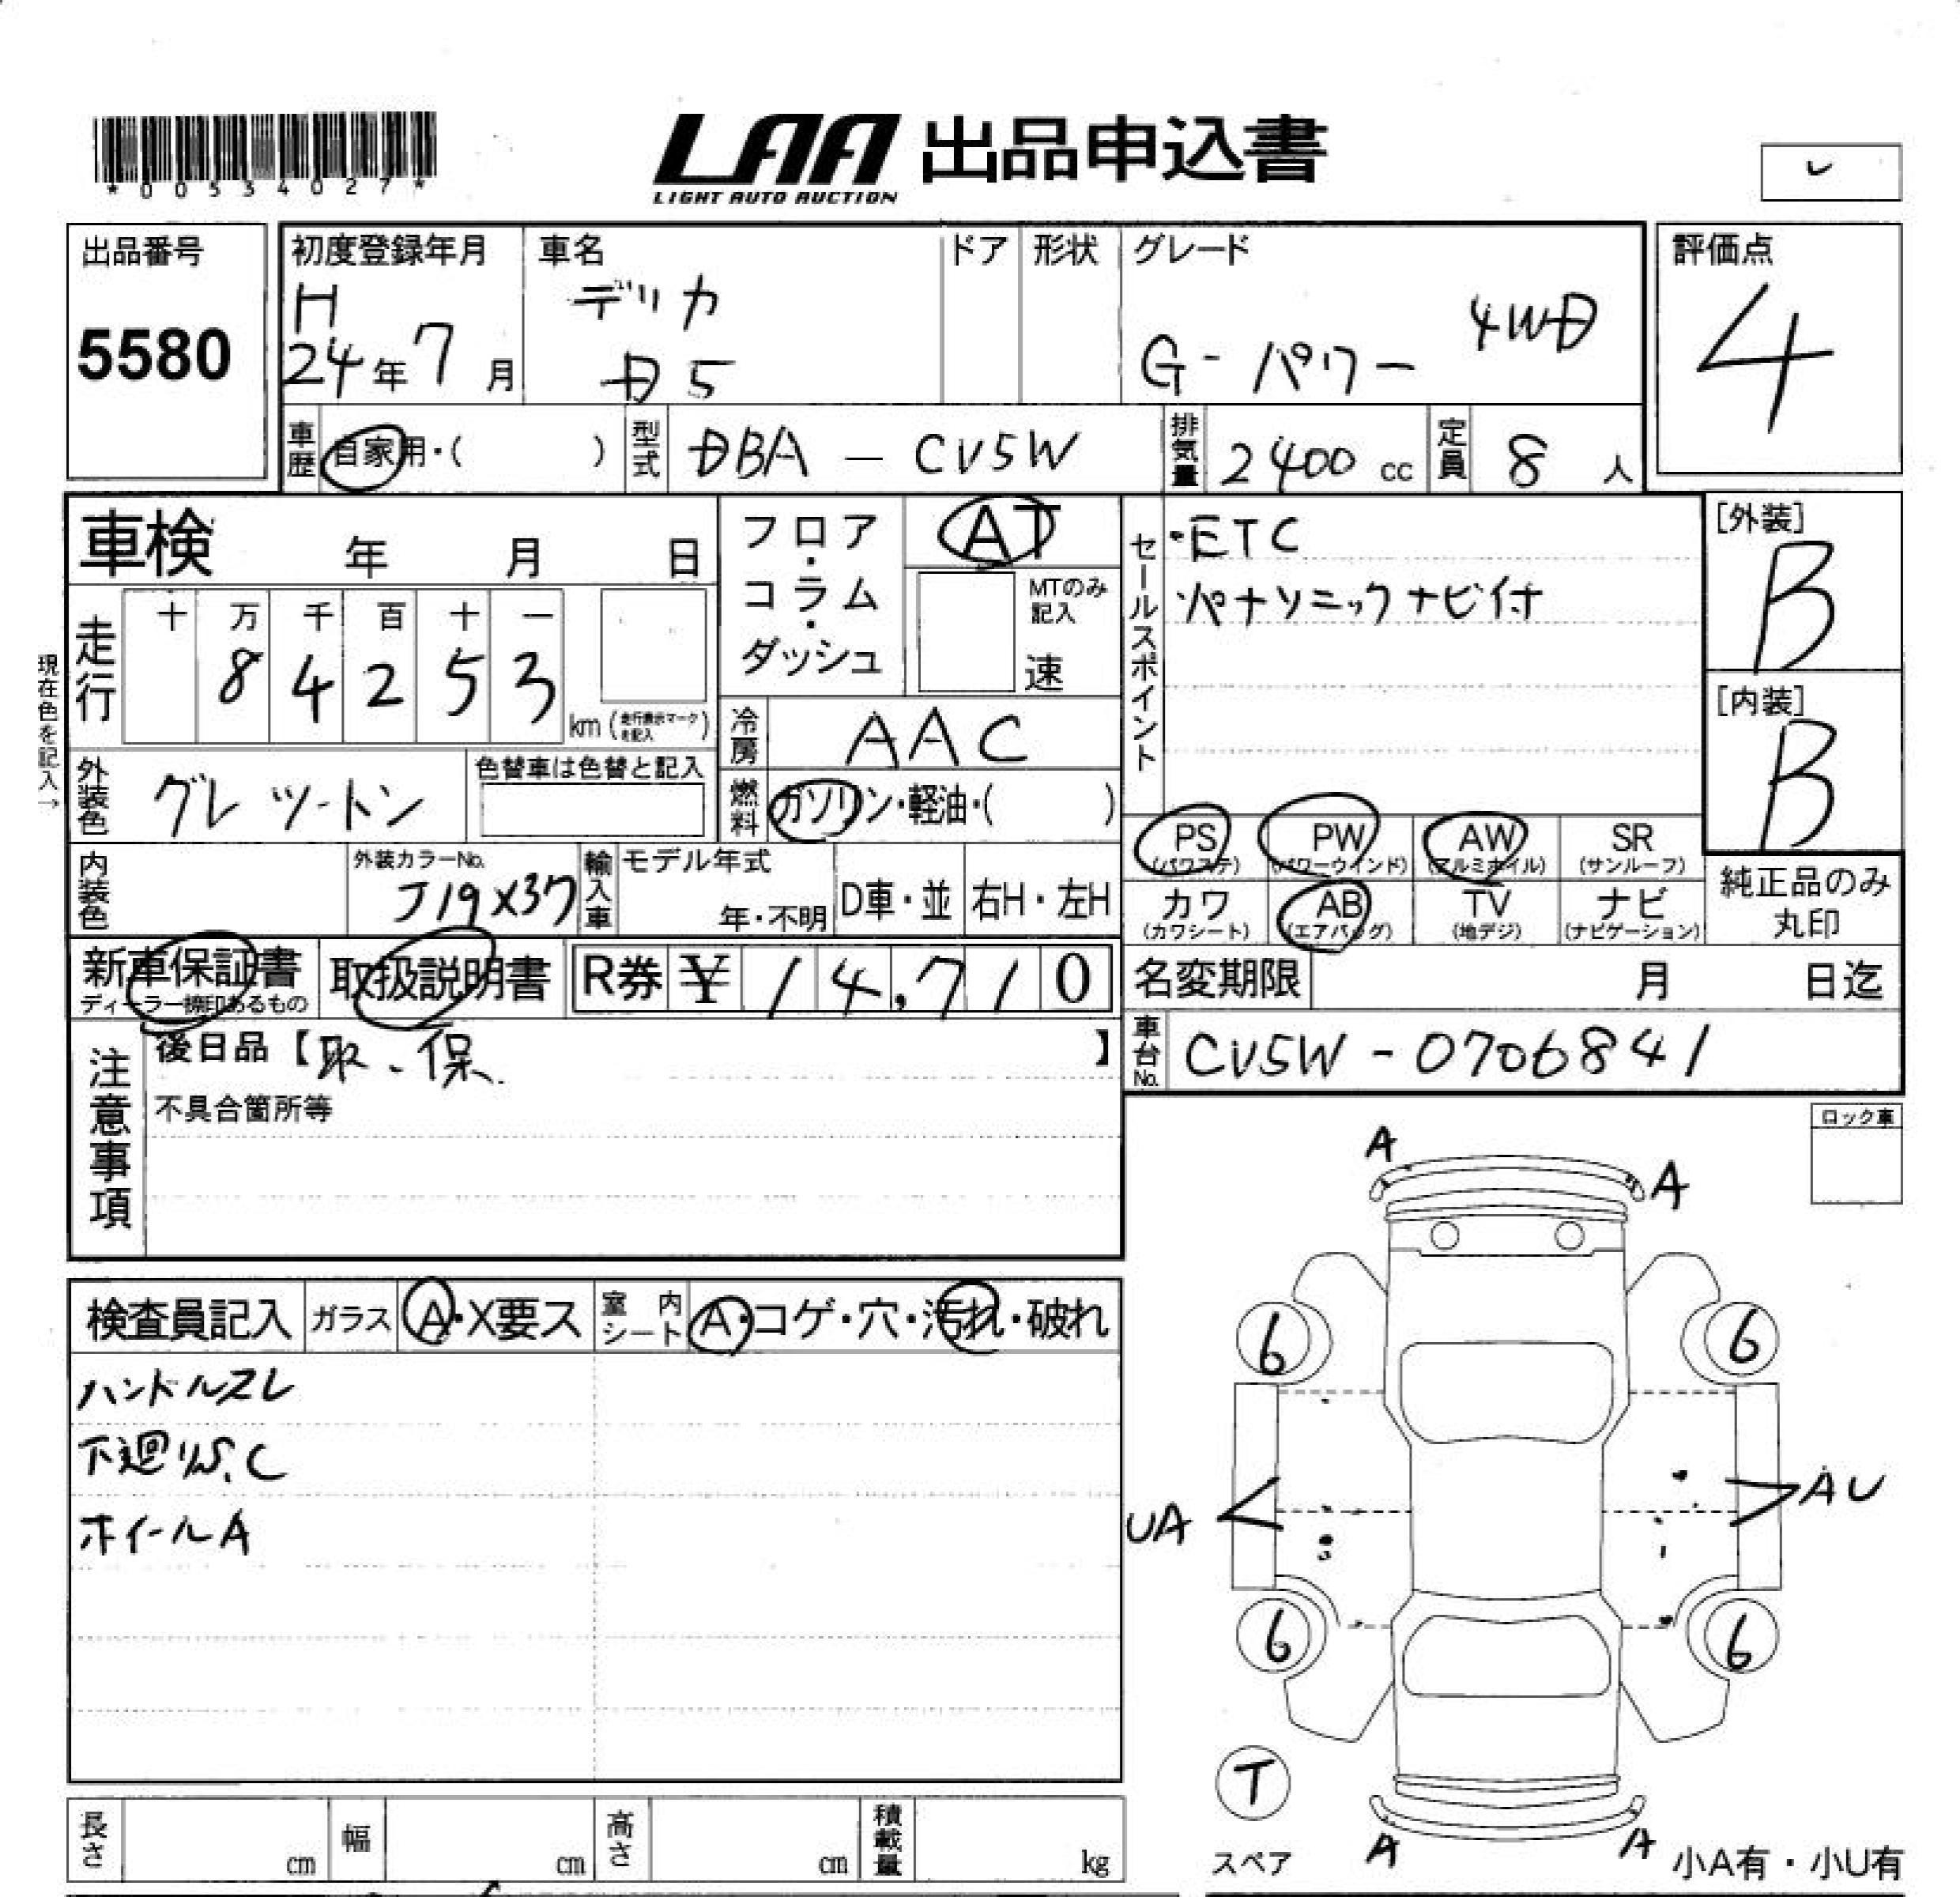 *00534027*
LAA 出品申込書
LIGHT AUTO AUCTION
レ
出品番号
5580
初度登録年月
H
24年7月
車名
デリカ
D5
ドア
形状
グレード
G-パワー 4WD
評価点
4
車歴 自家用・( )
型式 DBA - CV5W
排気量 2400 cc
定員 8 人
車検 年 月 日
現在色を記入→
走行
十 万 千 百 十 一
8 4 2 5 3
km (走行表示マークを記入)
フロア・コラム・ダッシュ
AT
MTのみ記入
速
冷房 AAC
燃料 ガソリン・軽油・( )
外装色 グレ ツートン
色替車は色替と記入
内装色
外装カラーNo.
J19X37
輸入車
モデル年式
年・不明
D車・並
右H・左H
セールスポイント
・ETC
・パナソニックナビ付
[外装]
B
[内装]
B
PS (パワステ)
PW (パワーウインド)
AW (アルミホイル)
SR (サンルーフ)
カワ (カワシート)
AB (エアバッグ)
TV (地デジ)
ナビ (ナビゲーション)
純正品のみ
丸印
新車保証書
ディーラー捺印あるもの
取扱説明書
R券 ¥ 14,710
名変期限 月 日迄
車台No. CV5W - 0706841
注意事項
後日品【取、保 】
不具合箇所等
ロック車
検査員記入
ガラス A・X要ス
室内シート A・コゲ・穴・汚れ・破れ
ハンドルスレ
下廻りS.C
ホイールA
A
A
6
6
UA
AU
6
6
T
スペア
A
A
小A有・小U有
長さ cm
幅 cm
高さ cm
積載量 kg